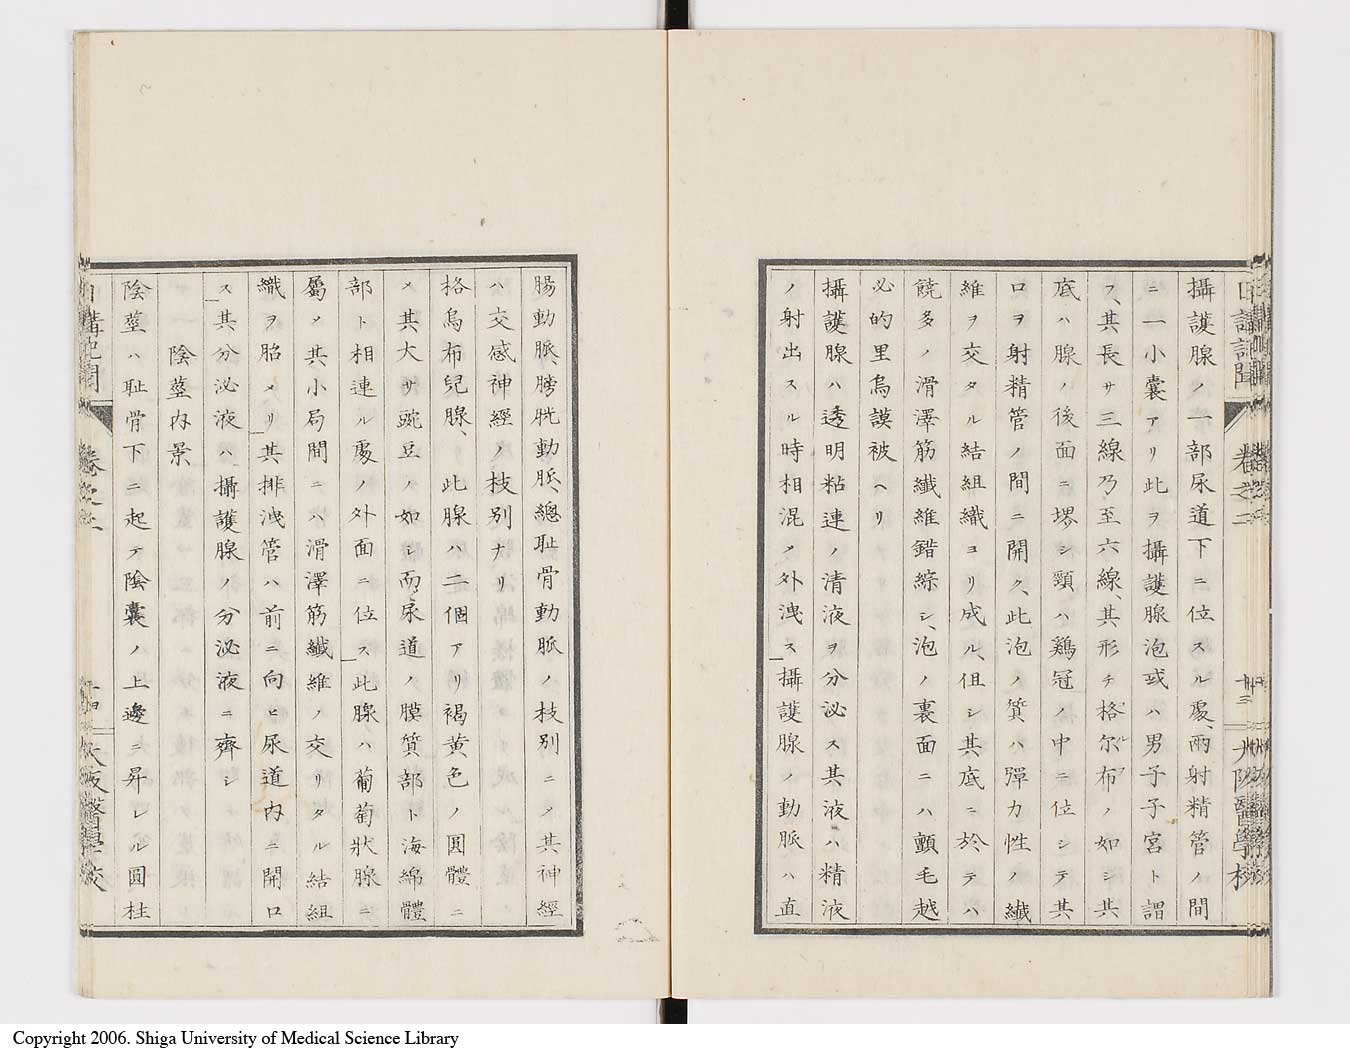 攝護腺ノ一部尿道下ニ位スル處、兩射精管ノ間
ニ一小囊アリ此ヲ攝護腺泡或ハ男子子宮ト謂
フ、其長サ三線乃至六線、其形チ格尔布ノ如シ其
底ハ腺ノ後面ニ堺シ頸ハ鷄冠ノ中ニ位シテ其
口ヲ射精管ノ間ニ開ク、此泡ノ質ハ彈力性ノ纖
維ヲ交タル結組織ヨリ成ル、但シ其底ニ於テハ
饒多ノ滑澤筋纖維錯綜シ、泡ノ裏面ニハ顫毛越
必的里烏謨被ヘリ
攝護腺ハ透明粘連ノ清液ヲ分泌ス其液ハ精液
ノ射出スル時相混ノ外洩ス攝護腺ノ動脈ハ直
腸動脈、膀胱動脈、總耻骨動脈ノ枝別ニノ其神經
ハ交感神經ノ枝別ナリ
格烏布兒腺、此腺ハ二個アリ褐黄色ノ圓體ニ
メ其大サ豌豆ノ如シ而尿道ノ膜質部ト海綿體
部ト相連ル處ノ外面ニ位ス此腺ハ葡萄狀腺ニ
屬メ其小局間ニハ滑澤筋纖維ノ交リタル結組
織ヲ胎メリ其排洩管ハ前ニ向ヒ尿道内ニ開口
ス其分泌液ハ攝護腺ノ分泌液ニ齊シ
陰莖内景
陰莖ハ耻骨下ニ起テ陰囊ノ上邊ニ昇レル圓柱
日講記聞
卷之二
大阪醫學校
Copyright 2006. Shiga University of Medical Science Library